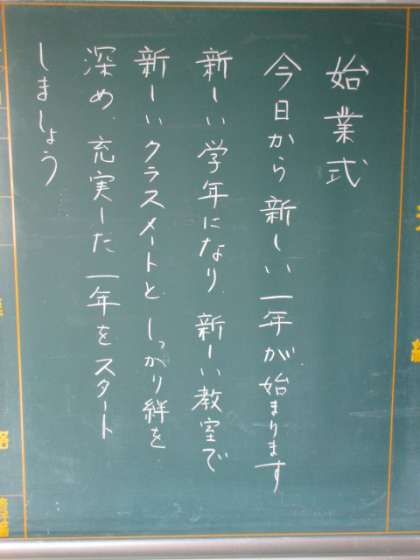 始業式
今日から新しい一年が始まります
新しい学年になり、新しい教室で
新しいクラスメートと、しっかり絆を
深め、充実した一年をスタート
しましょう